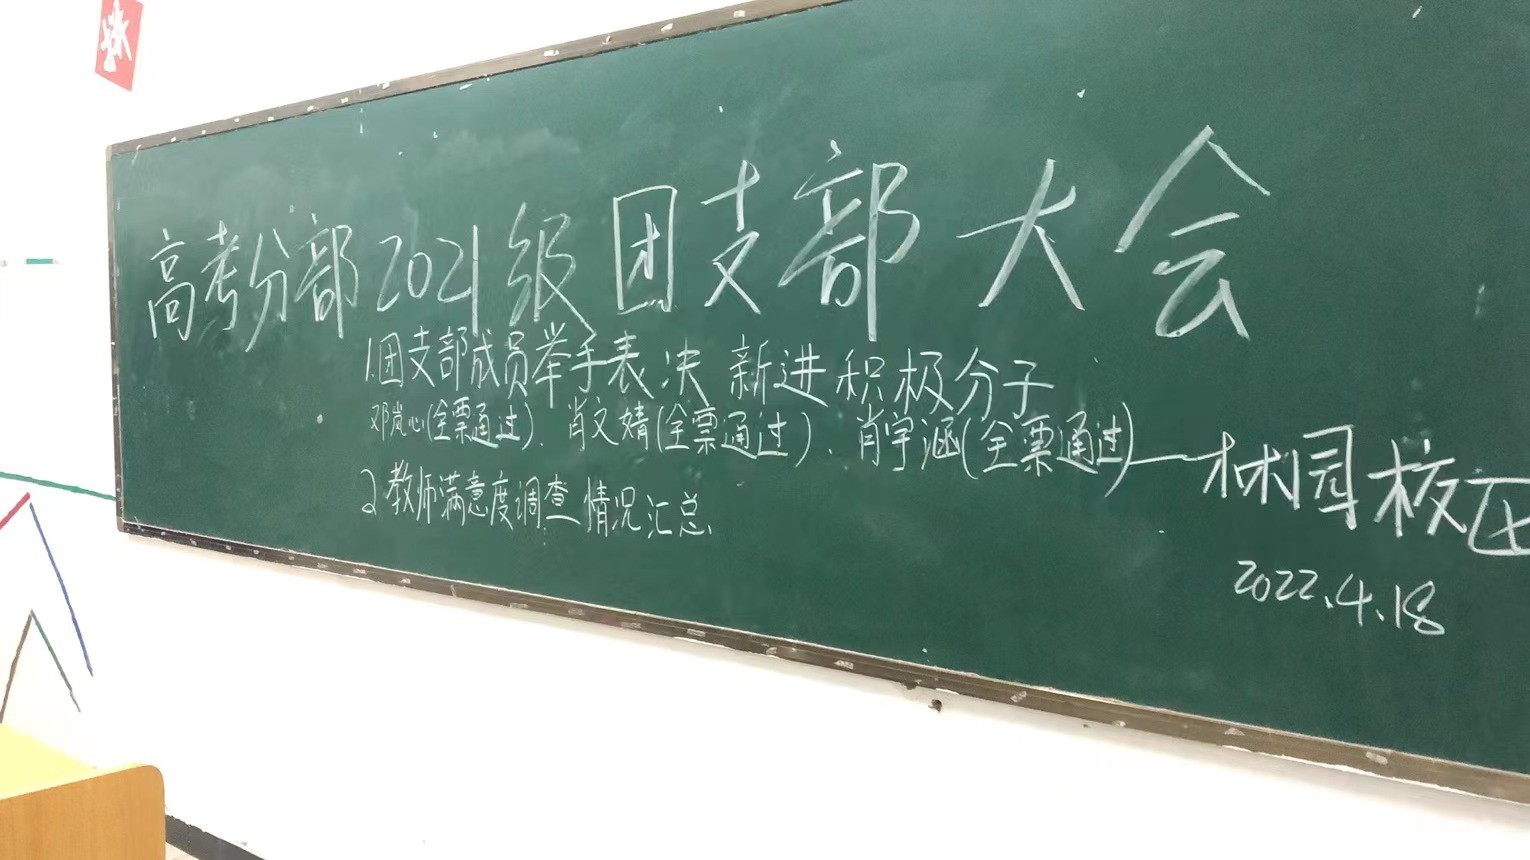 高考分部2021级团支部大会
1.团支部成员举手表决新进积极分子
邓岚心(全票通过)、肖文婧(全票通过)、肖宇涵(全票通过)——林园校区
2.教师满意度调查情况汇总
2022.4.18